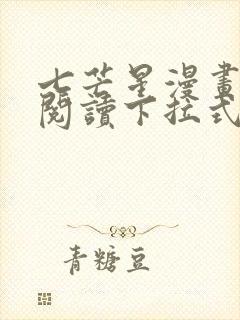 七芒星漫畫
閱讀下拉式
青糖豆